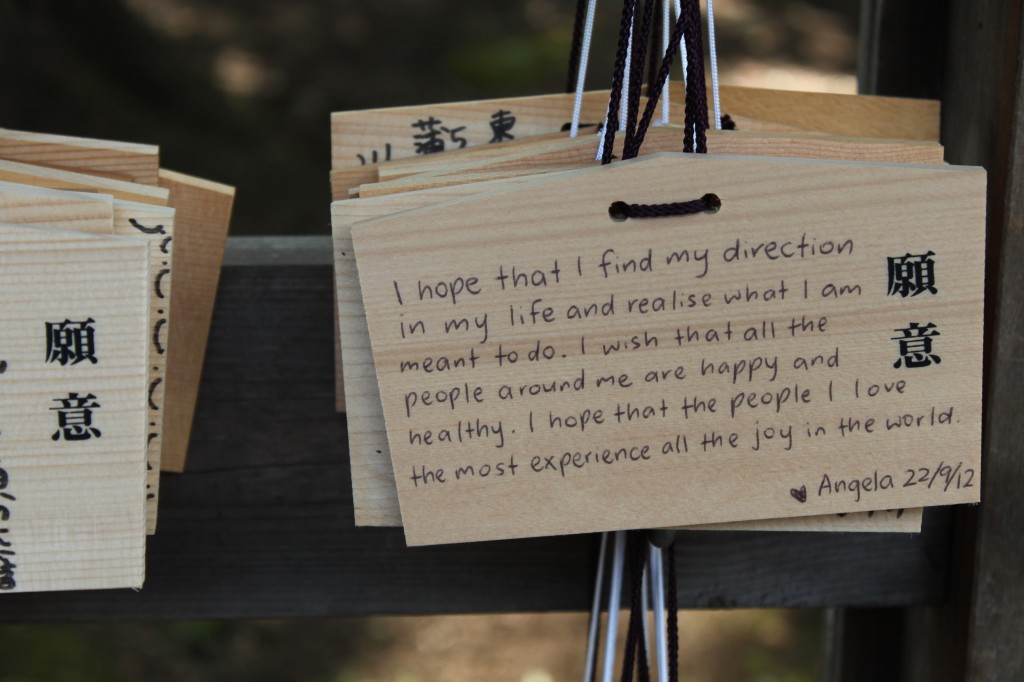 東
蒲
願意
I hope that I find my direction
in my life and realise what I am
meant to do. I wish that all the
people around me are happy and
healthy. I hope that the people I love
the most experience all the joy in the world.
♥ Angela 22/9/12
願意